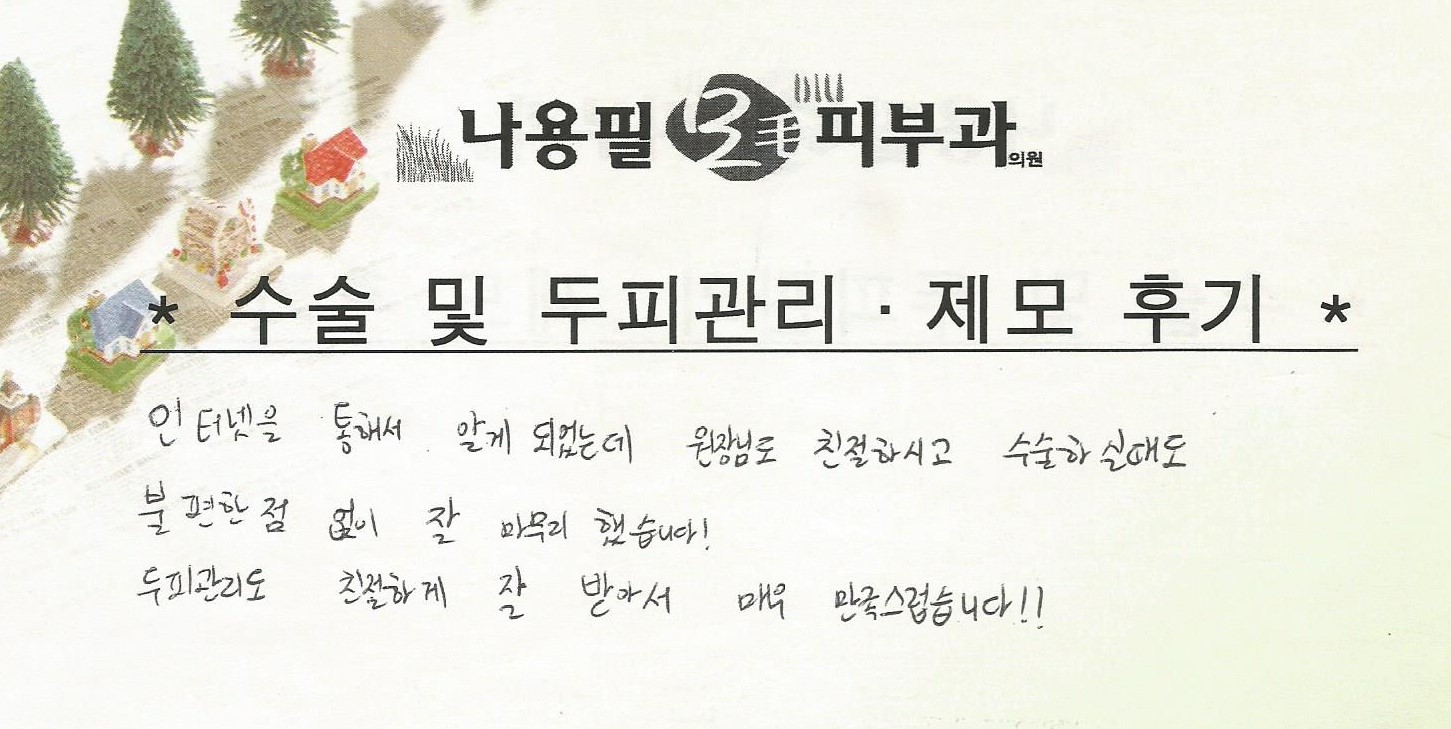 나용필 모 毛 피부과 의원
* 수술 및 두피관리 · 제모 후기 *
인터넷을 통해서 알게 되었는데 원장님도 친절하시고 수술하실때도
불편한점 없이 잘 마무리 했습니다!
두피관리도 친절하게 잘 받아서 매우 만족스럽습니다!!